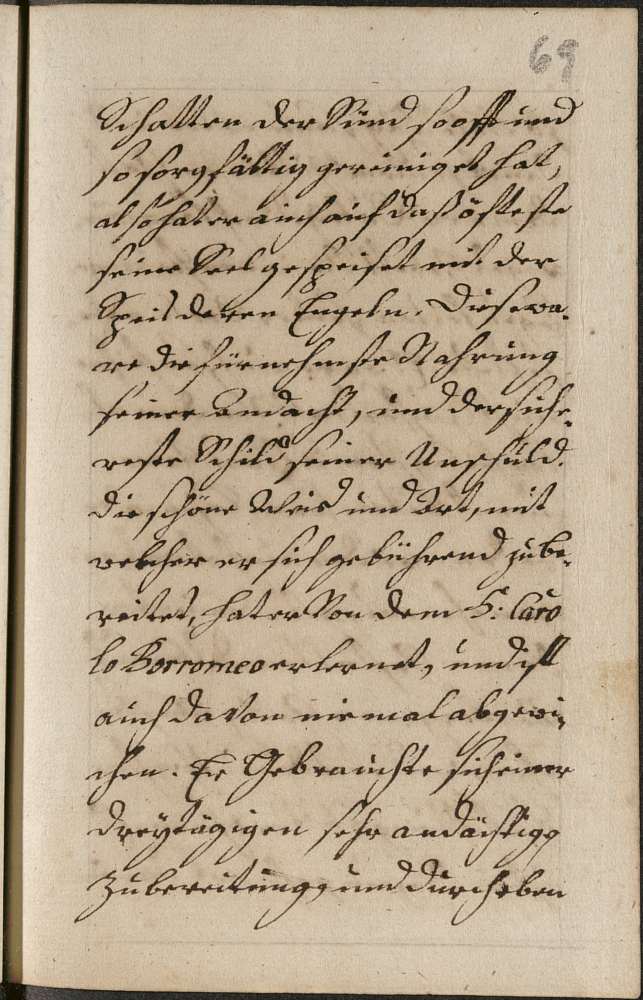 69
Schatten der Sünd so offt und
so sorgfältig gereiniget hat,
also hat er auch auf das öfteste
seine Seel gespeiset mit der
Speis deren Engeln. Diese wa-
re die fürnehmste Nahrung
seiner Andacht, und der siche-
reste Schild seiner Unschuld.
die schöne Weis und Art, mit
welcher er sich gebührend zube-
reitet, hat er von dem H: Caro
lo Borromeo erlernet, und ist
auch davon niemal abgewi-
chen. Er Gebrauchte sich einer
dreytägigen sehr andächtigen
Zubereitung, und durch eben